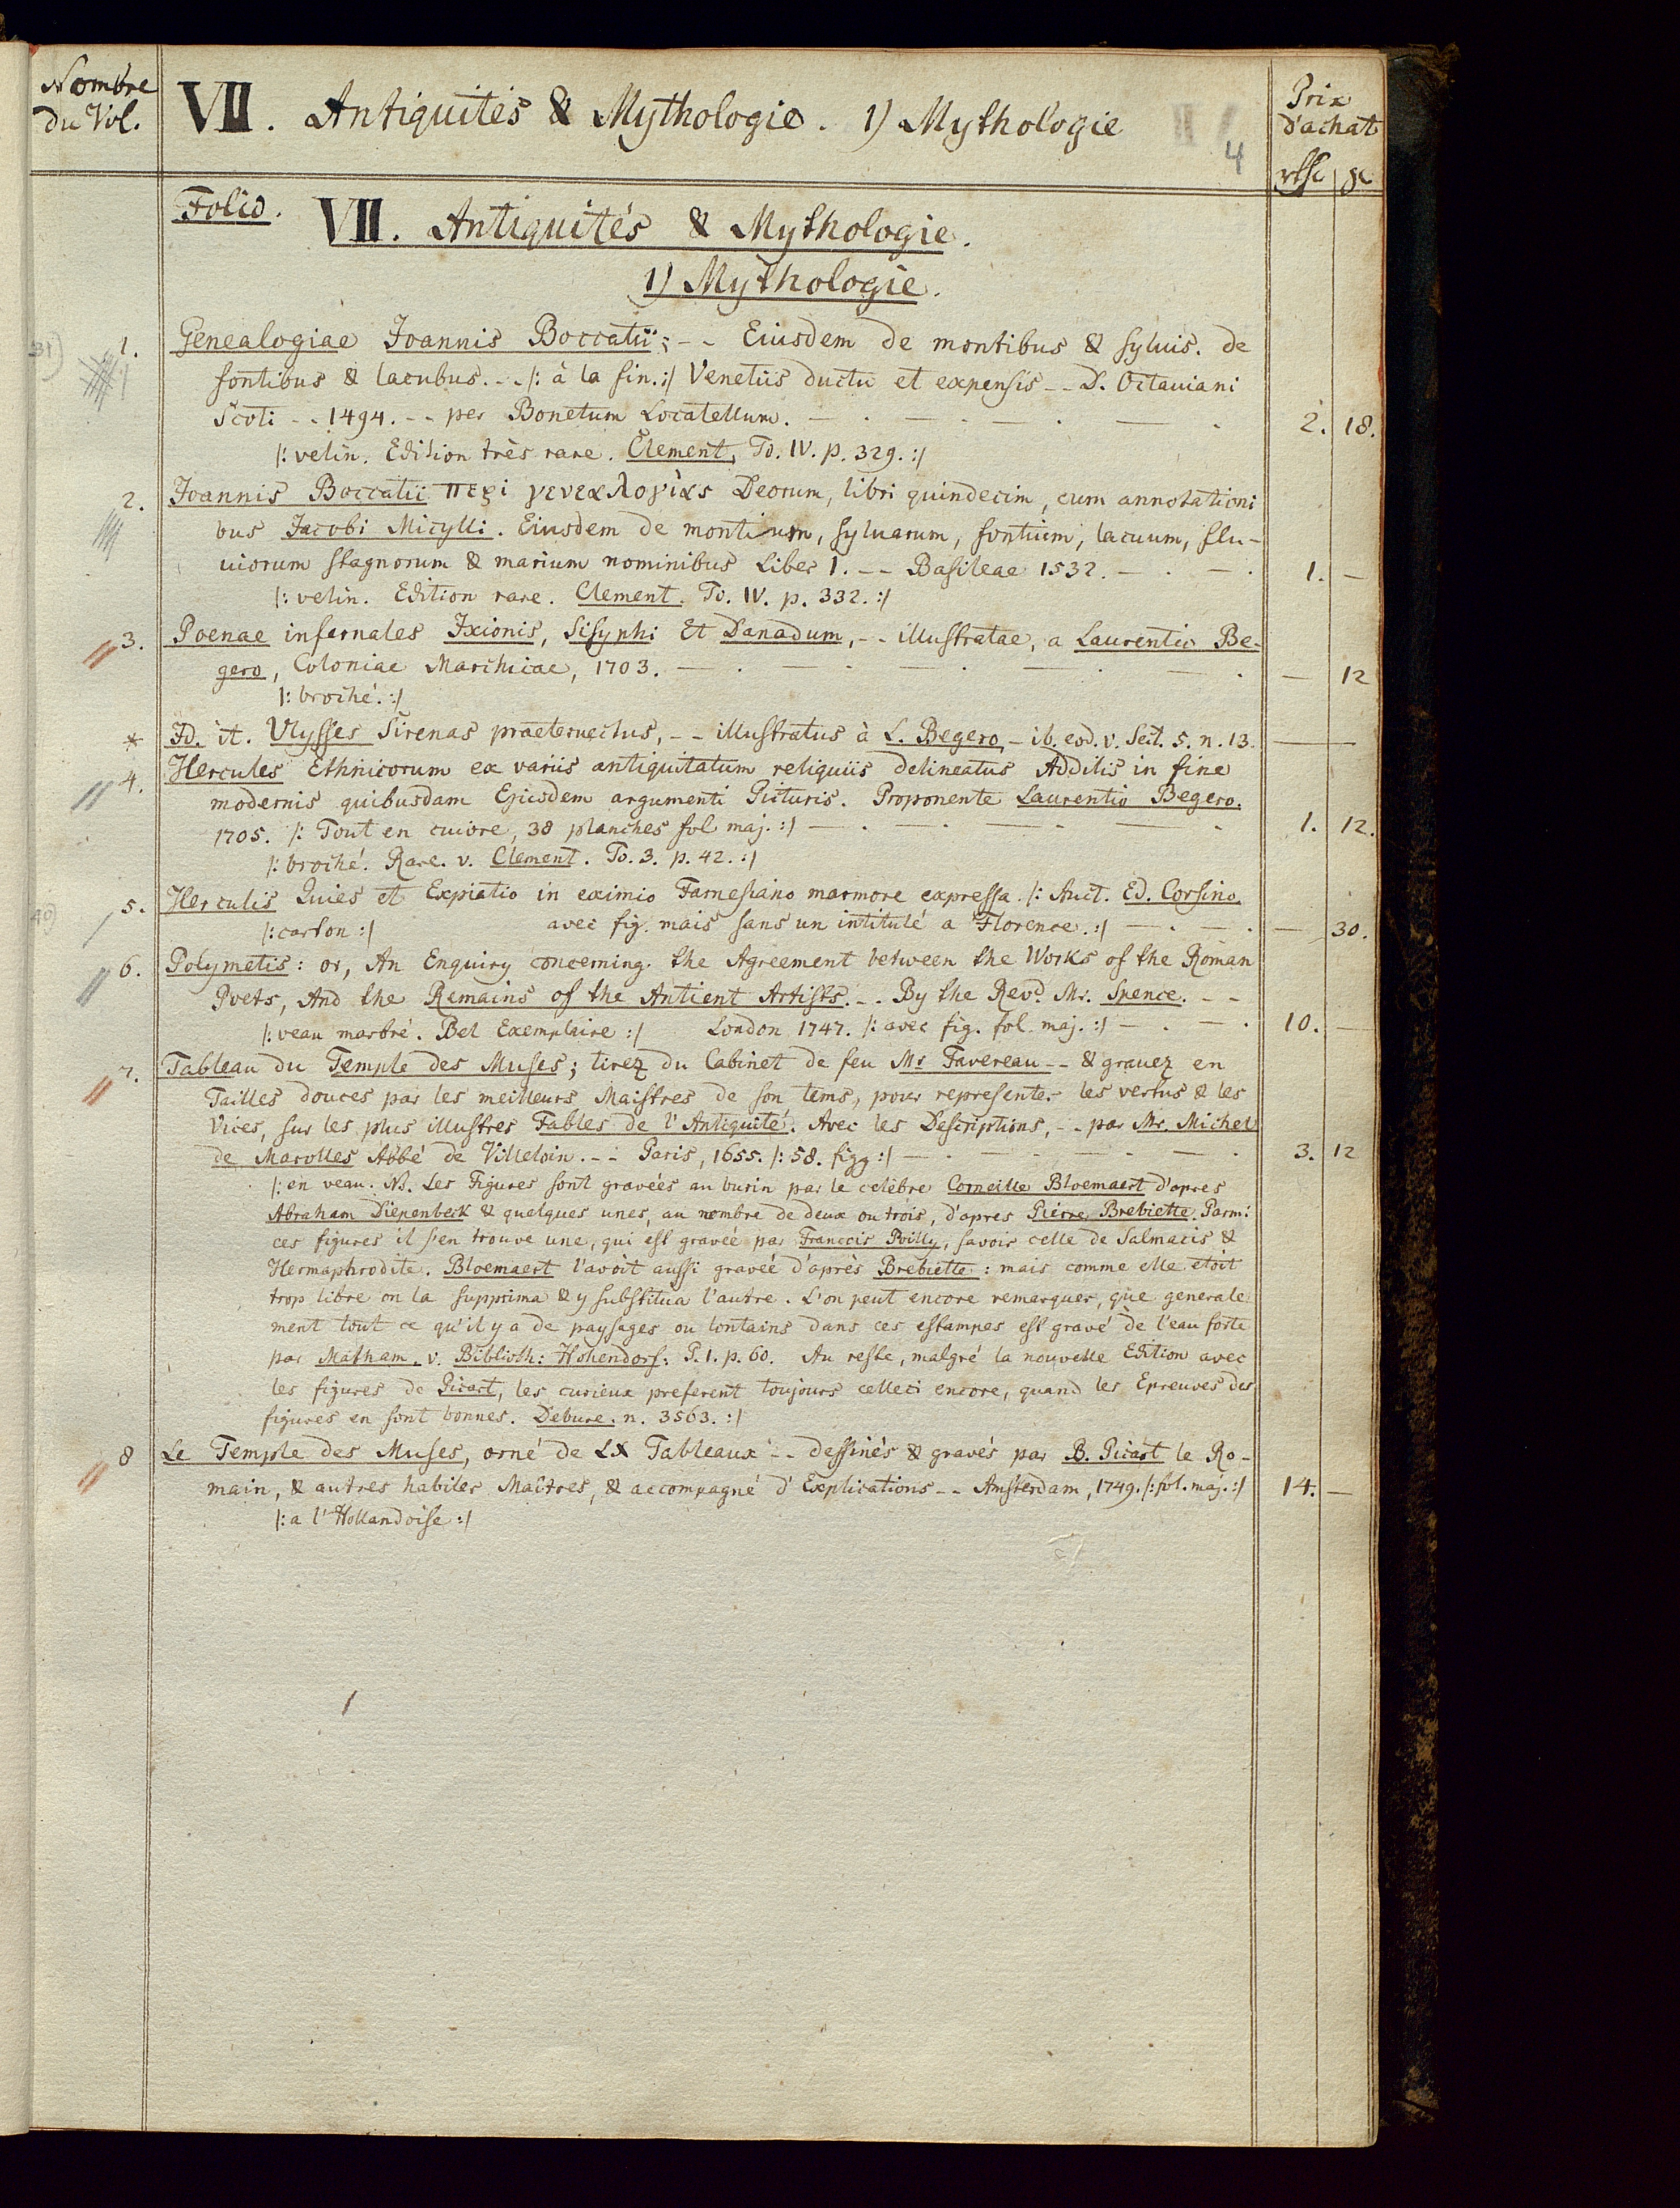 Nombre
du Vol.
VII. Antiquités & Mythologie. 1) Mythologie
4
Prix
d'achat
Folio.
VII. Antiquités & Mythologie.
1) Mythologie.
31)
1. Genealogiae Joannis Boccatii; -- Eiusdem de montibus & syluis. de
fontibus & lacubus. -- /: à la fin. :/ Venetiis ductu et expensis -- D. Octauiani
Scoti -- 1494. -- per Bonetum Locatellum. — . — . — . — . 2. 18.
/: velin. Edition très rare. Clement, To. IV. p. 329. :/
2. Joannis Boccatii περὶ γενεαλογίας Deorum, libri quindecim, cum annotationi
bus Jacobi Micylli. Eiusdem de montium, syluarum, fontium, lacuum, flu-
uiorum stagnorum & marium nominibus Liber 1. -- Basileae 1532. — . — . 1. —
/: velin. Edition rare. Clement. To. IV. p. 332. :/
3. Poenae infernales Ixionis, Sisyphi Et Danadum, -- illustratae, a Laurentio Be-
gero, Coloniae Marchicae, 1703. — . — . — . — . — . — 12
/: broché. :/
* Id. it. Ulysses Sirenas praeteruectus, -- illustratus à L. Begero, - ib. eod. v. Sect. 5. n. 13. — —
4. Hercules Ethnicorum ex variis antiquitatum reliquiis delineatus Additis in fine
modernis quibusdam Ejusdem argumenti Picturis. Proponente Laurentio Begero.
1705. /: Tout en cuivre, 38 planches fol maj. :/ — . — . — . — . 1. 12.
/: broché. Rare. v. Clement. To. 3. p. 42. :/
40)
5. Herculis Quies et Expiatio in eximio Farnesiano marmore expressa. /: Auct. Ed. Corsino.
/: carton :/ avec fig. mais sans un intitulé a Florence. :/ — . — . — 30.
6. Polymetis: or, An Enquiry concerning the Agreement between the Works of the Roman
Poets, And the Remains of the Antient Artists. -- By the Revd. Mr. Spence. --
/: veau marbré. Bel Exemplaire :/ London 1747. /: avec fig. fol. maj. :/ — . — . 10. —
7. Tableau du Temple des Muses; tirez du Cabinet de feu Mr Favereau -- & gravez en
Tailles douces par les meilleurs Maistres de son tems, pour representer les vertus & les
Vices, sur les plus illustres Fables de l'Antiquité. Avec les Descriptions, -- par Mr. Michel
de Marolles Abbé de Villeloin. -- Paris, 1655. /: 58. figg :/ — . — . — . — . 3. 12
/: en veau. NB. Les Figures sont gravées au burin par le celèbre Corneille Bloemaert d'apres
Abraham Diepenbeck & quelques unes, au nombre de deux ou trois, d'apres Pierre Brebiette. Parmi
ces figures il s'en trouve une, qui est gravée par Franccis Poilly, savoir celle de Salmacis &
Hermaphrodite. Bloemaert l'avoit aussi gravée d'après Brebiette: mais comme elle étoit
trop libre on la supprima & y substitua l'autre. L'on peut encore remarquer, que generale-
ment tout ce qu'il y a de paysages ou lontains dans ces estampes est gravé de l'eau forte
par Matham. v. Biblioth: Hohendorf: P. 1. p. 60. Au reste, malgré la nouvelle Edition avec
les figures de Picart, les curieux preferent toujours celleci encore, quand les Epreuves des
figures en sont bonnes. Debure. n. 3563. :/
8 Le Temple des Muses, orné de LX Tableaux -- dessinés & gravés par B. Picart le Ro-
main, & autres habiles Maîtres, & accompagné d'Explications -- Amsterdam, 1749. /: fol. maj. :/ 14. —
/: a l'Hollandoise :/